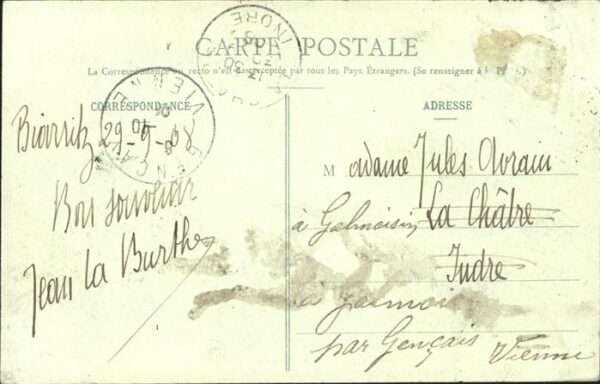 CARTE POSTALE
La Correspondance au recto n'est pas acceptée par tous les Pays Étrangers. (Se renseigner à la Poste).
CORRESPONDANCE
Biarritz 29-9-08
Bon souvenir
Jean la Burthe
ADRESSE
Madame Jules Avrain
La Châtre
Indre
à
à
par Gençais Vienne
INDRE
GENÇAY
VIENNE